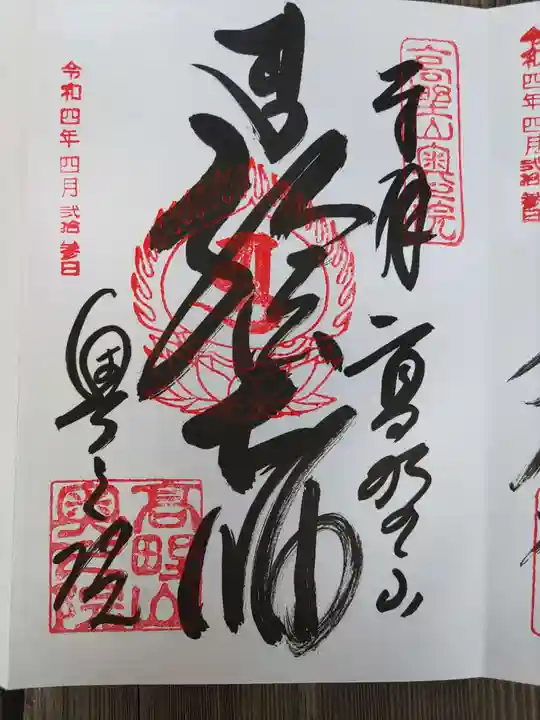 高野山奥之院
奉拝 高野山
弘法大師
奥之院
高野山
奥之院
令和四年四月弐拾参日
令和四年四月弐拾参日